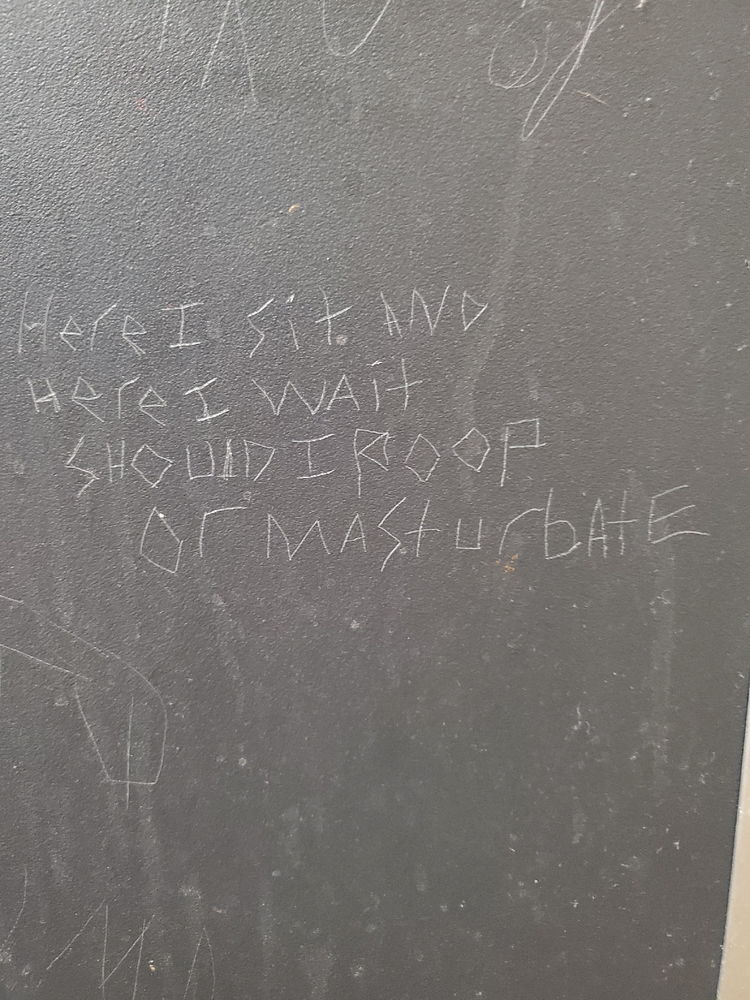 Here I sit AND
Here I WAit
SHOUlD I POOP
Or MAStUrbAtE